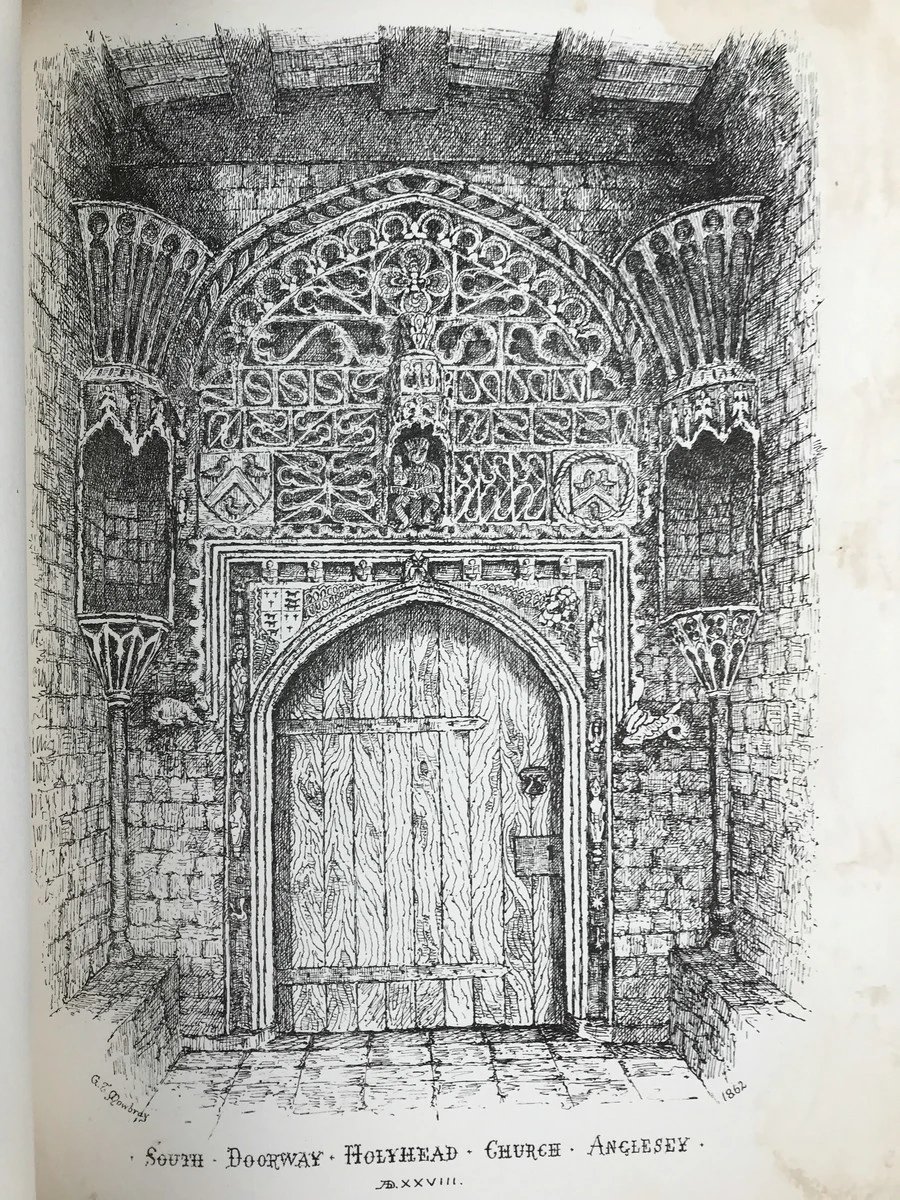 G. J. Mowbray
1862
· SOUTH · DOORWAY · HOLYHEAD · CHURCH · ANGLESEY ·
AD. XXVIII.